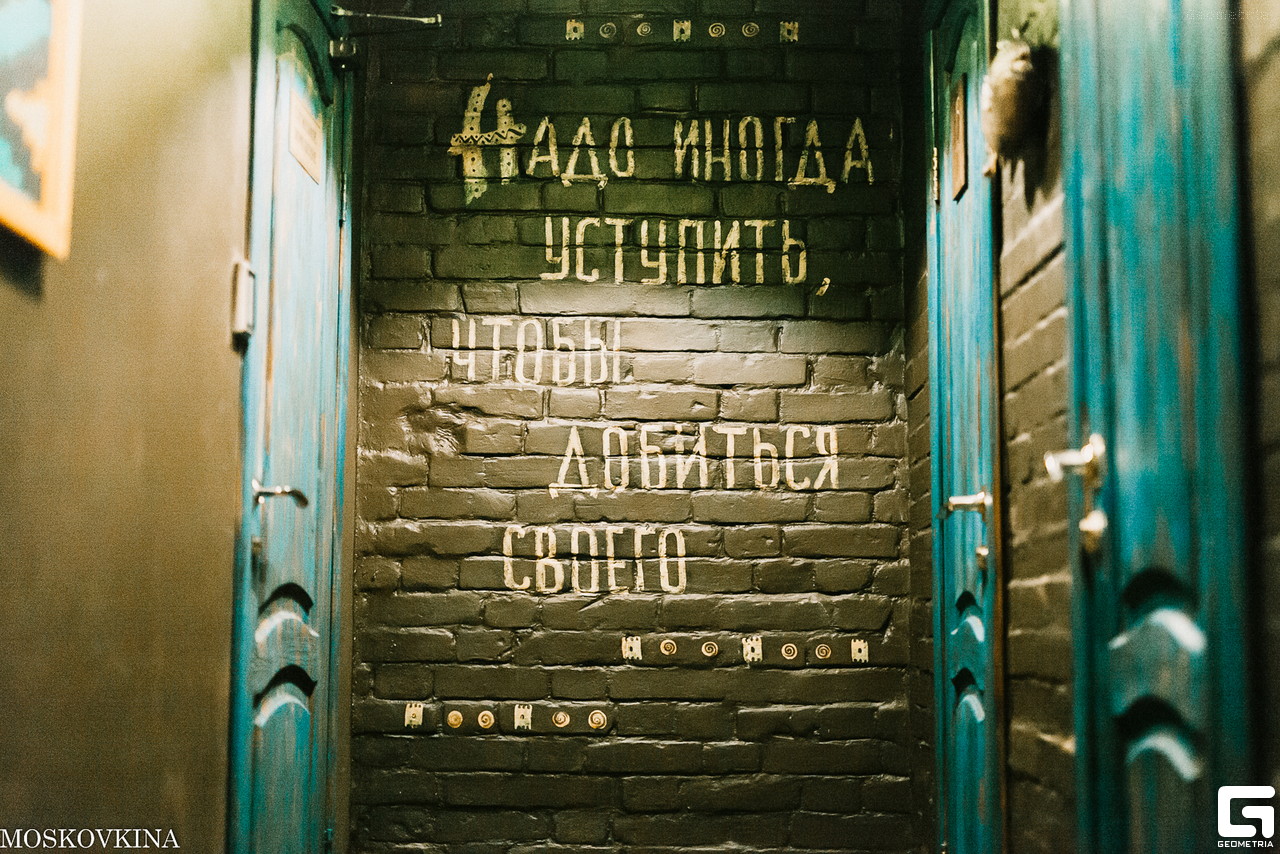 Надо иногда
уступить,
чтобы
добиться
своего
MOSKOVKINA
GEOMETRIA